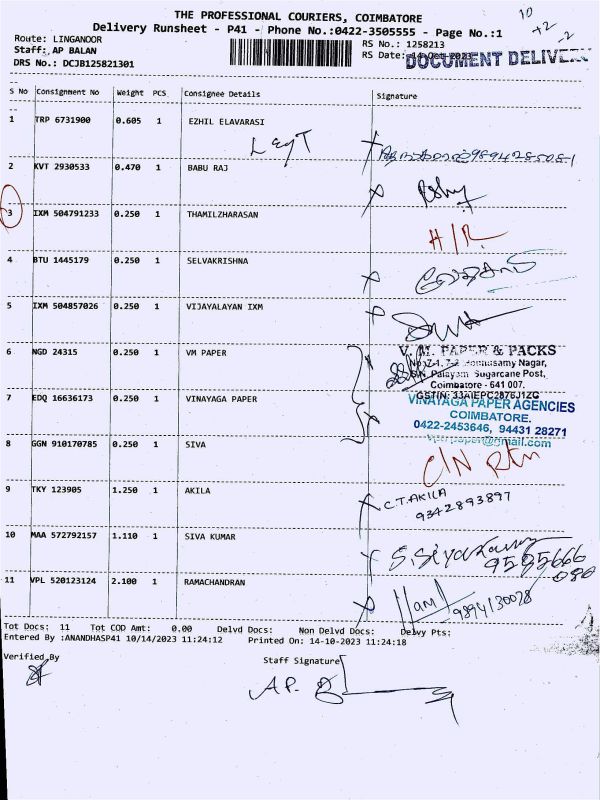 THE PROFESSIONAL COURIERS, COIMBATORE
10
Delivery Runsheet - P41 - Phone No.:0422-3505555 - Page No.:1
+2
-2
Route: LINGANOOR
RS No.: 1258213
Staff: AP BALAN
RS Date: 14-Oct-2023
DOCUMENT DELIVE
DRS No.: DCJB125821301
S No Consignment No Weight PCS Consignee Details Signature
1 TRP 6731900 0.605 1 EZHIL ELAVARASI
2 KVT 2930533 0.470 1 BABU RAJ
3 IXM 504791233 0.250 1 THAMILZHARASAN
H/R
4 BTU 1445179 0.250 1 SELVAKRISHNA
5 IXM 504857026 0.250 1 VIJAYALAYAN IXM
6 NGD 24315 0.250 1 VM PAPER
V. M. PAPER & PACKS
Palayam Sugarcane Post,
Coimbatore - 641 007.
7 EDQ 16636173 0.250 1 VINAYAGA PAPER
VINAYAGA PAPER AGENCIES
COIMBATORE.
0422-2453646, 94431 28271
8 GGN 910170785 0.250 1 SIVA
C/N Rtn
9 TKY 123905 1.250 1 AKILA
C.T. AKILA
9342893897
10 MAA 572792157 1.110 1 SIVA KUMAR
S. Sivakumar
9595666
11 VPL 520123124 2.100 1 RAMACHANDRAN
Tot Docs: 11 Tot COD Amt: 0.00 Delvd Docs: Non Delvd Docs: Delvy Pts:
Entered By :ANANDHASP41 10/14/2023 11:24:12 Printed On: 14-10-2023 11:24:18
Verified By
Staff Signature
A.P.